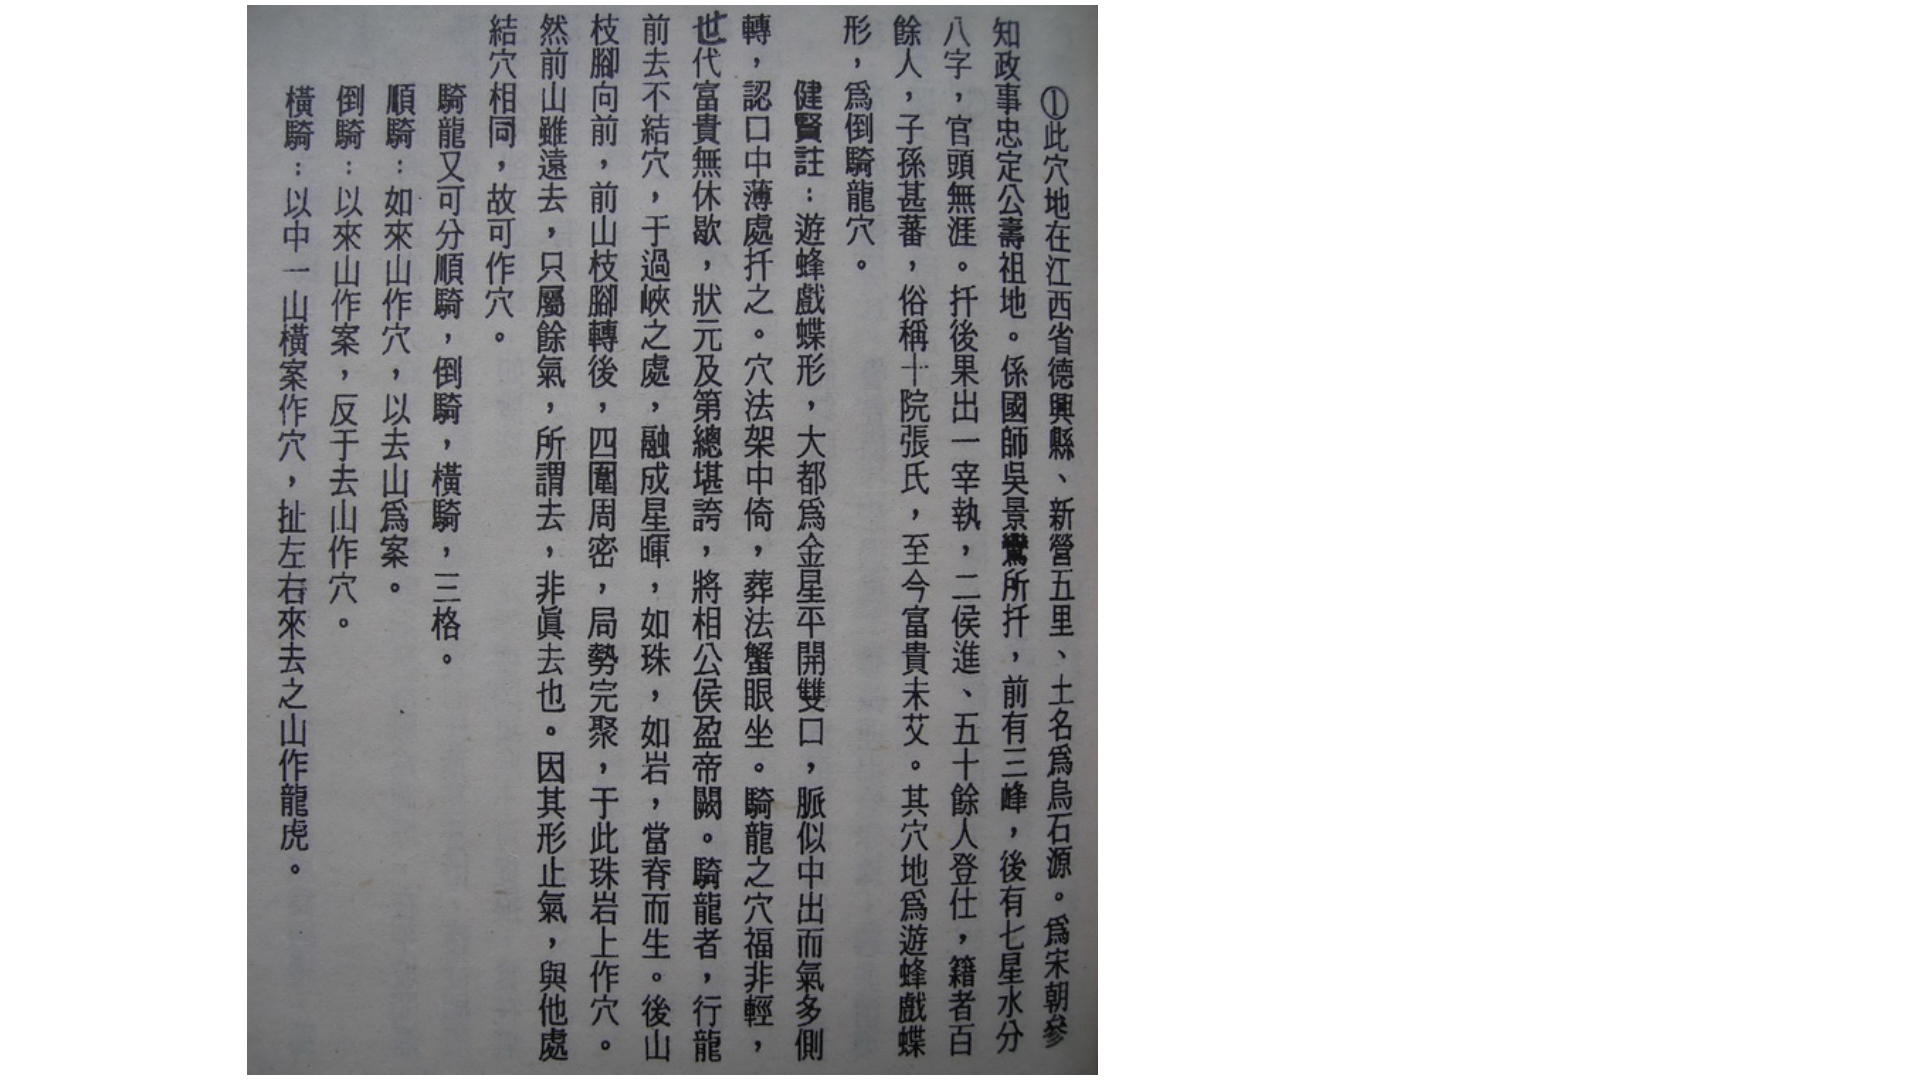 ①此穴地在江西省德興縣、新營五里、土名爲烏石源。爲宋朝參
知政事忠定公壽祖地。係國師吳景鸞所扦，前有三峰，後有七星水分
八字，官頭無涯。扦後果出一宰執，二侯進、五十餘人登仕，籍者百
餘人，子孫甚蕃，俗稱十院張氏，至今富貴未艾。其穴地爲遊蜂戲蝶
形，爲倒騎龍穴。
健賢註：遊蜂戲蝶形，大都爲金星平開雙口，脈似中出而氣多側
轉，認口中薄處扦之。穴法架中倚，葬法蟹眼坐。騎龍之穴福非輕，
也代富貴無休歇，狀元及第總堪誇，將相公侯盈帝闕。騎龍者，行龍
前去不結穴，于過峽之處，融成星暉，如珠，如岩，當脊而生。後山
枝腳向前，前山枝腳轉後，四圍周密，局勢完聚，于此珠岩上作穴。
然前山雖遠去，只屬餘氣，所謂去，非眞去也。因其形止氣，與他處
結穴相同，故可作穴。
騎龍又可分順騎，倒騎，橫騎，三格。
順騎：如來山作穴，以去山爲案。
倒騎：以來山作案，反于去山作穴。
橫騎：以中一山橫案作穴，扯左右來去之山作龍虎。